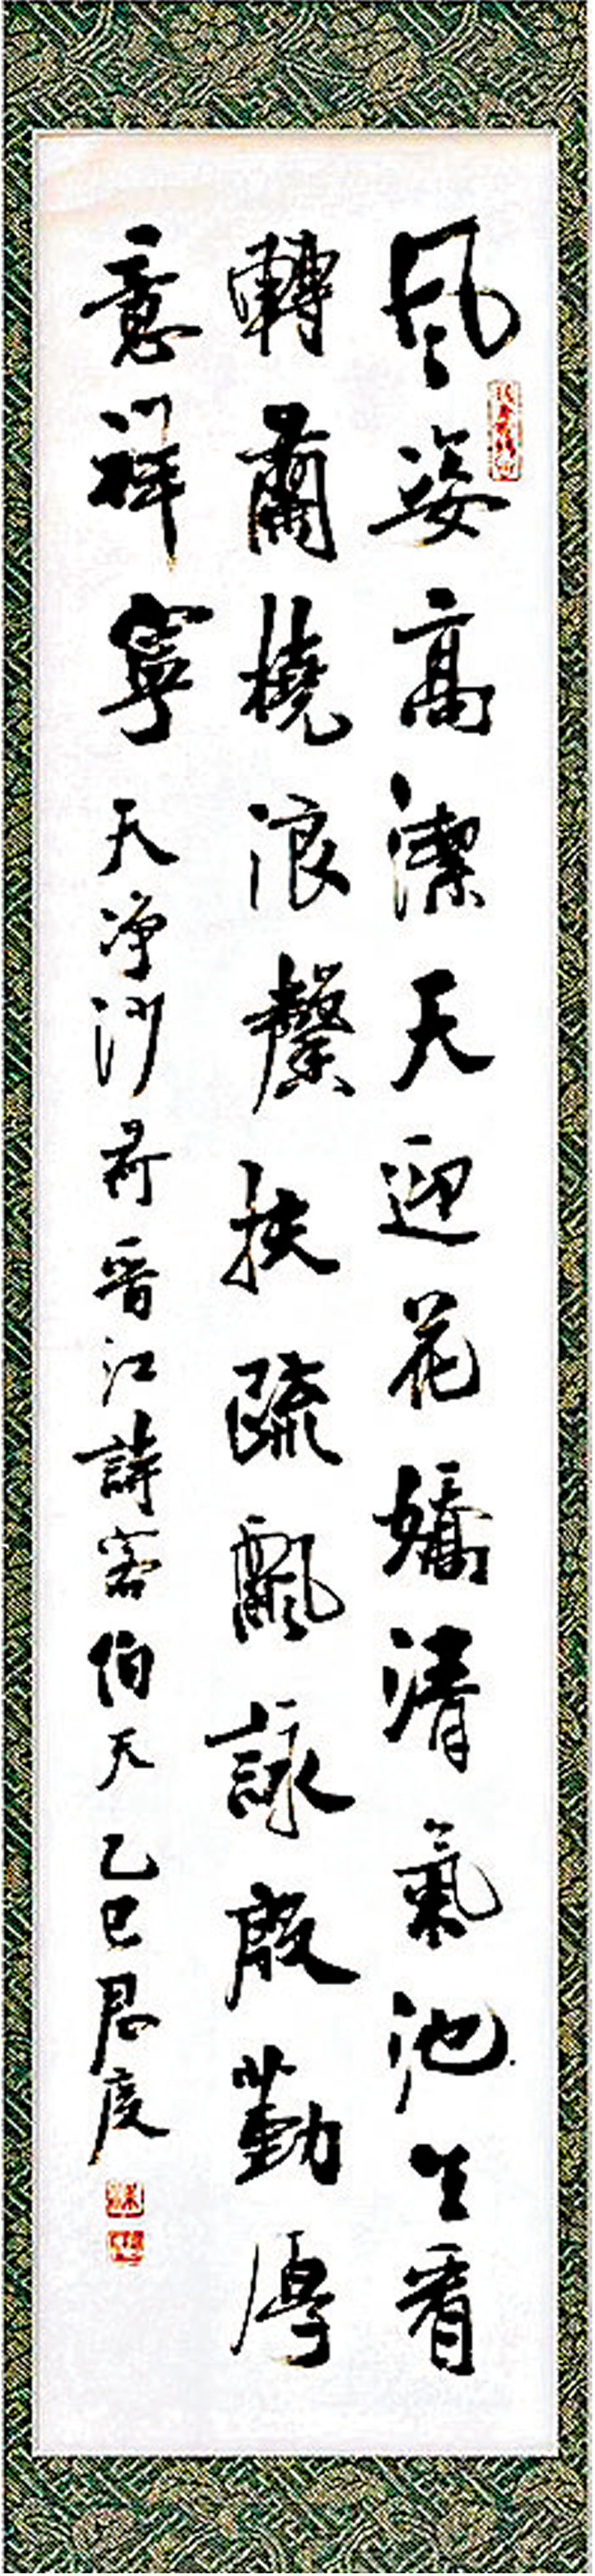 風姿高潔天迎花嬌清氣池生看
轉蘭橈浪馨扶疏飄詠殷勤厚
意祥寧 天净沙 荷 晉江詩客伯天 乙巳 度